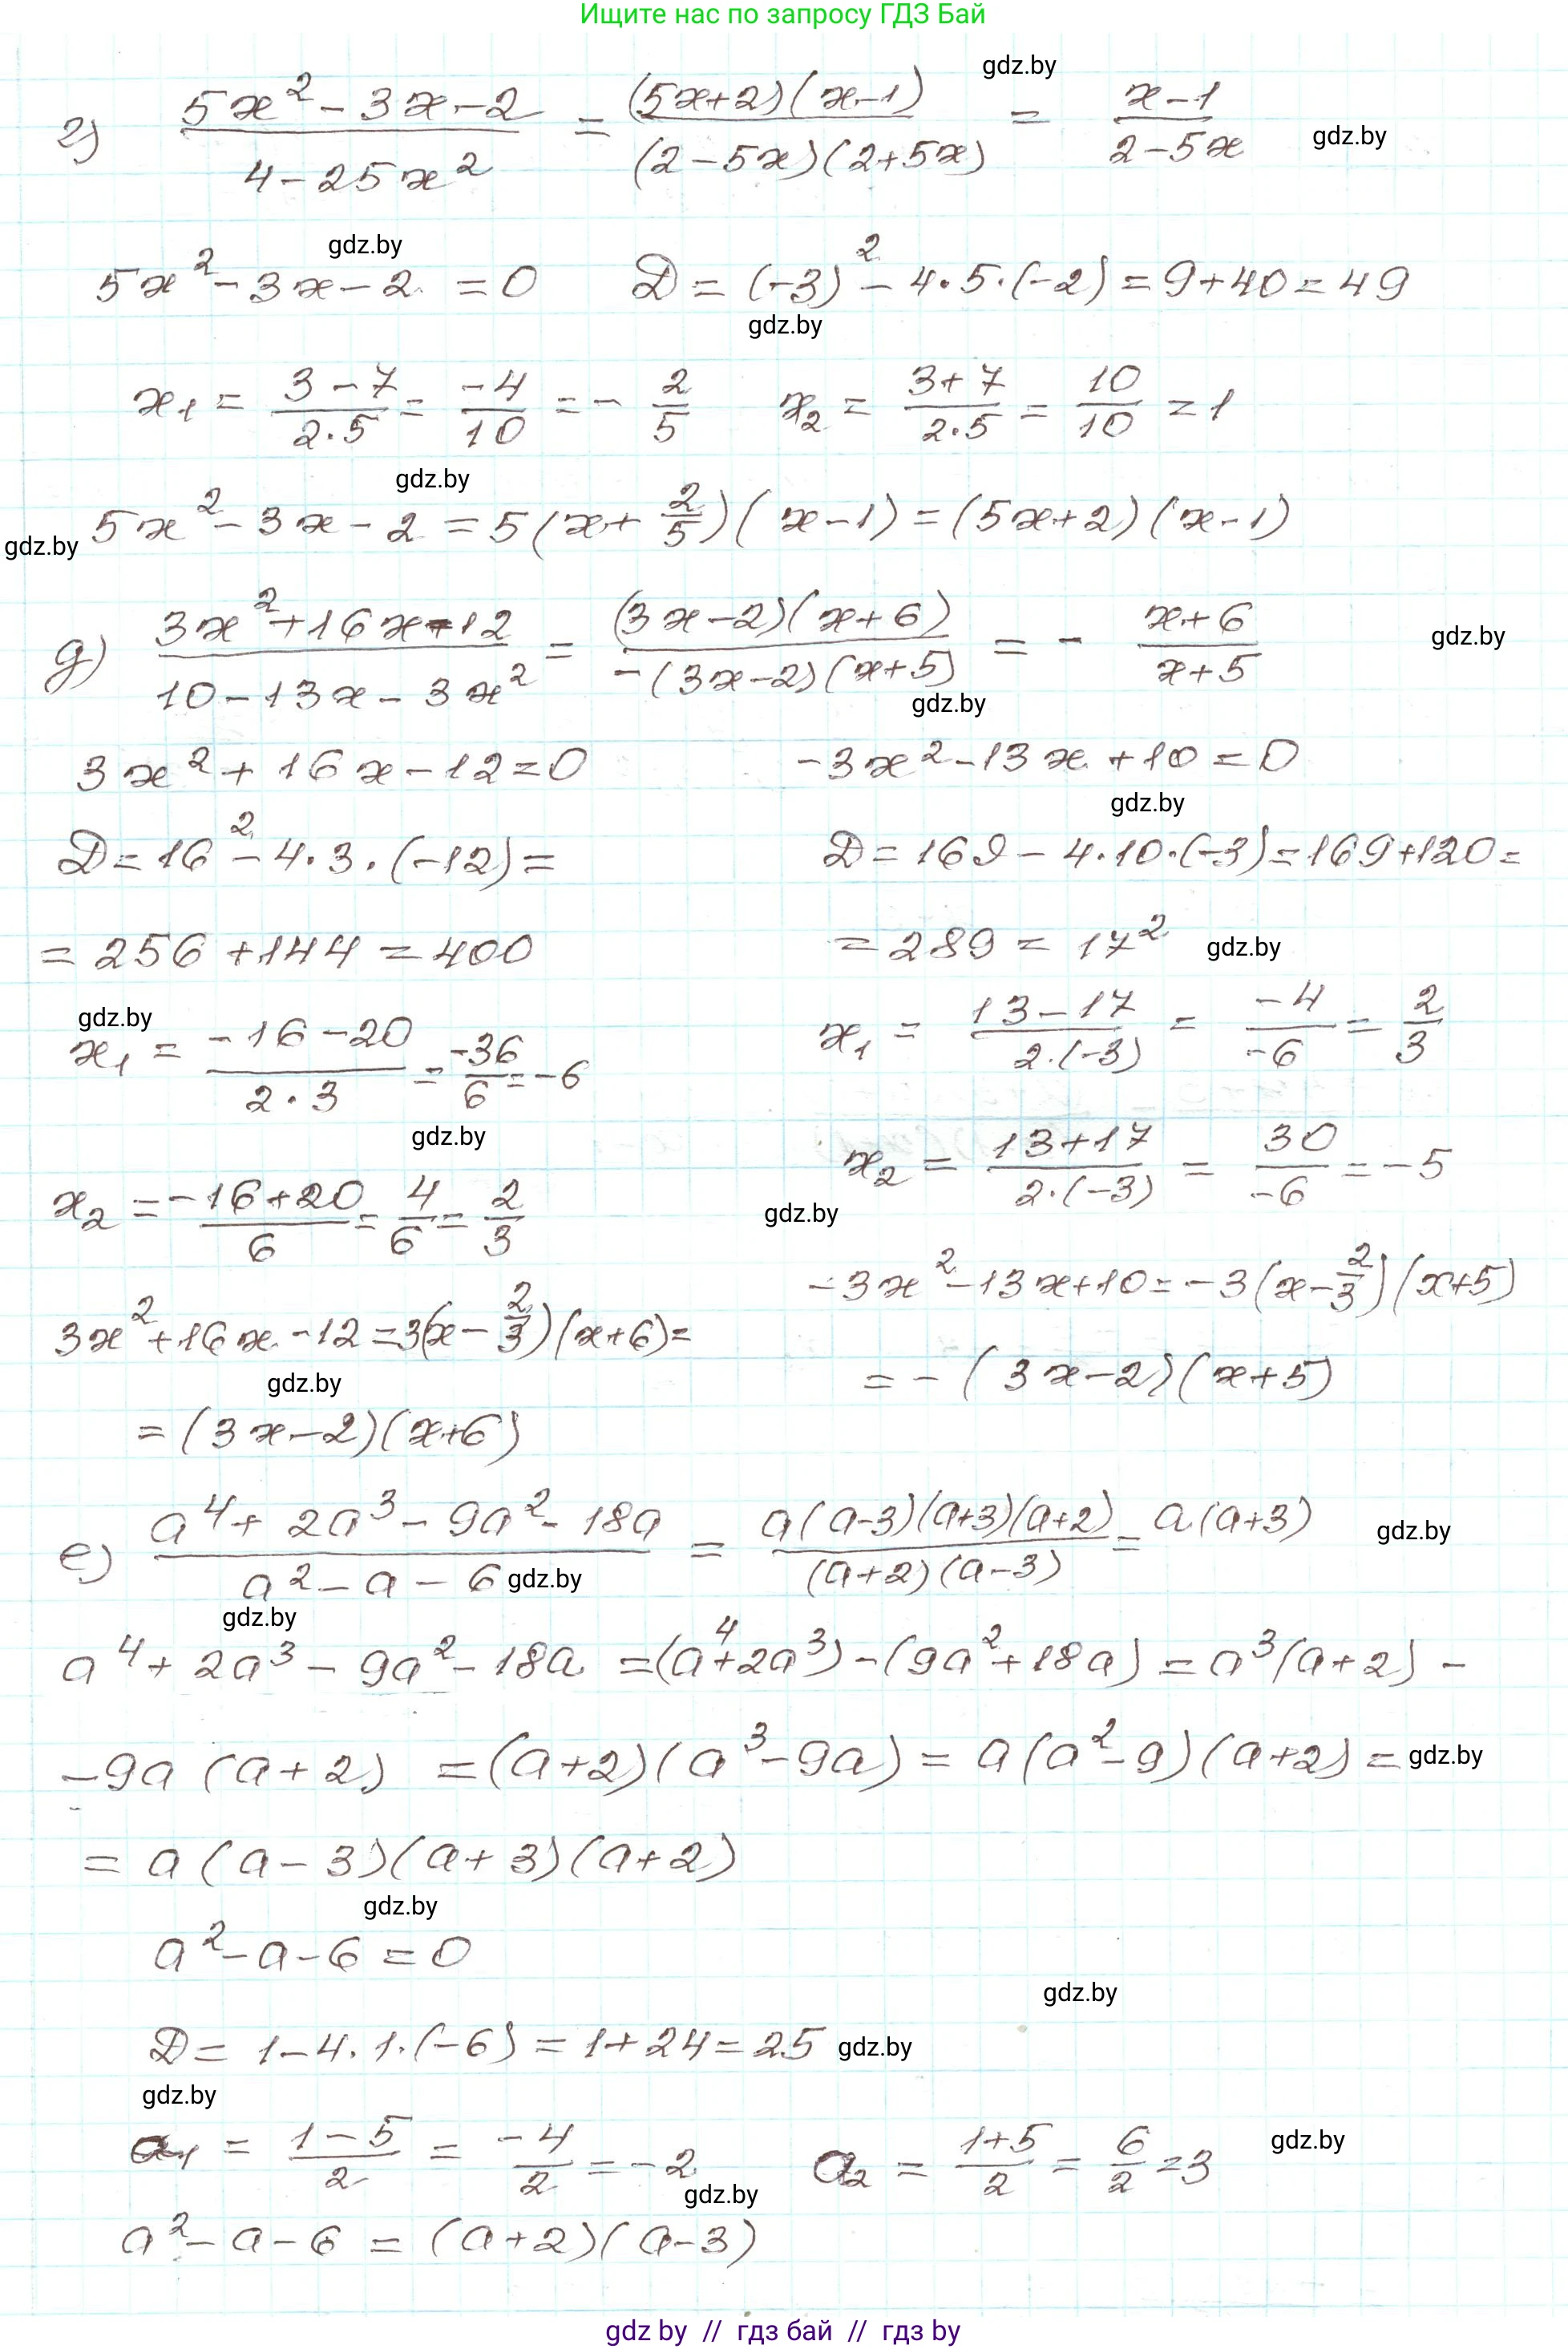 Ищите нас по запросу ГДЗ Бай
gdz.by
г) (5x² - 3x - 2)/(4 - 25x²) = ((5x+2)(x-1))/((2-5x)(2+5x)) = (x-1)/(2-5x)
gdz.by
gdz.by
5x² - 3x - 2 = 0 D = (-3)² - 4·5·(-2) = 9+40 = 49
gdz.by
x₁ = (3-7)/(2·5) = -4/10 = - 2/5 x₂ = (3+7)/(2·5) = 10/10 = 1
gdz.by
5x² - 3x - 2 = 5(x + 2/5)(x-1) = (5x+2)(x-1)
gdz.by
д) (3x² + 16x - 12)/(10 - 13x - 3x²) = ((3x-2)(x+6))/(-(3x-2)(x+5)) = - (x+6)/(x+5)
gdz.by
gdz.by
3x² + 16x - 12 = 0 -3x² - 13x + 10 = 0
gdz.by
D = 16² - 4·3·(-12) = D = 169 - 4·10·(-3) = 169+120 =
= 256 + 144 = 400 = 289 = 17²
gdz.by
gdz.by
x₁ = (-16-20)/(2·3) = -36/6 = -6 x₁ = (13-17)/(2·(-3)) = -4/-6 = 2/3
gdz.by
x₂ = (-16+20)/6 = 4/6 = 2/3 x₂ = (13+17)/(2·(-3)) = 30/-6 = -5
gdz.by
3x² + 16x - 12 = 3(x - 2/3)(x+6) = -3x² - 13x + 10 = -3(x - 2/3)(x+5)
gdz.by
= (3x-2)(x+6) = -(3x-2)(x+5)
е) (a⁴ + 2a³ - 9a² - 18a)/(a² - a - 6) = (a(a-3)(a+3)(a+2))/((a+2)(a-3)) = a(a+3)
gdz.by
gdz.by
gdz.by
a⁴ + 2a³ - 9a² - 18a = (a⁴+2a³) - (9a²+18a) = a³(a+2) -
- 9a(a+2) = (a+2)(a³-9a) = a(a²-9)(a+2) =
gdz.by
= a(a-3)(a+3)(a+2)
gdz.by
a² - a - 6 = 0
gdz.by
D = 1 - 4·1·(-6) = 1+24 = 25
gdz.by
gdz.by
a₁ = (1-5)/2 = -4/2 = -2 a₂ = (1+5)/2 = 6/2 = 3
gdz.by
gdz.by
a² - a - 6 = (a+2)(a-3)
gdz by // гдз бай // гдз by